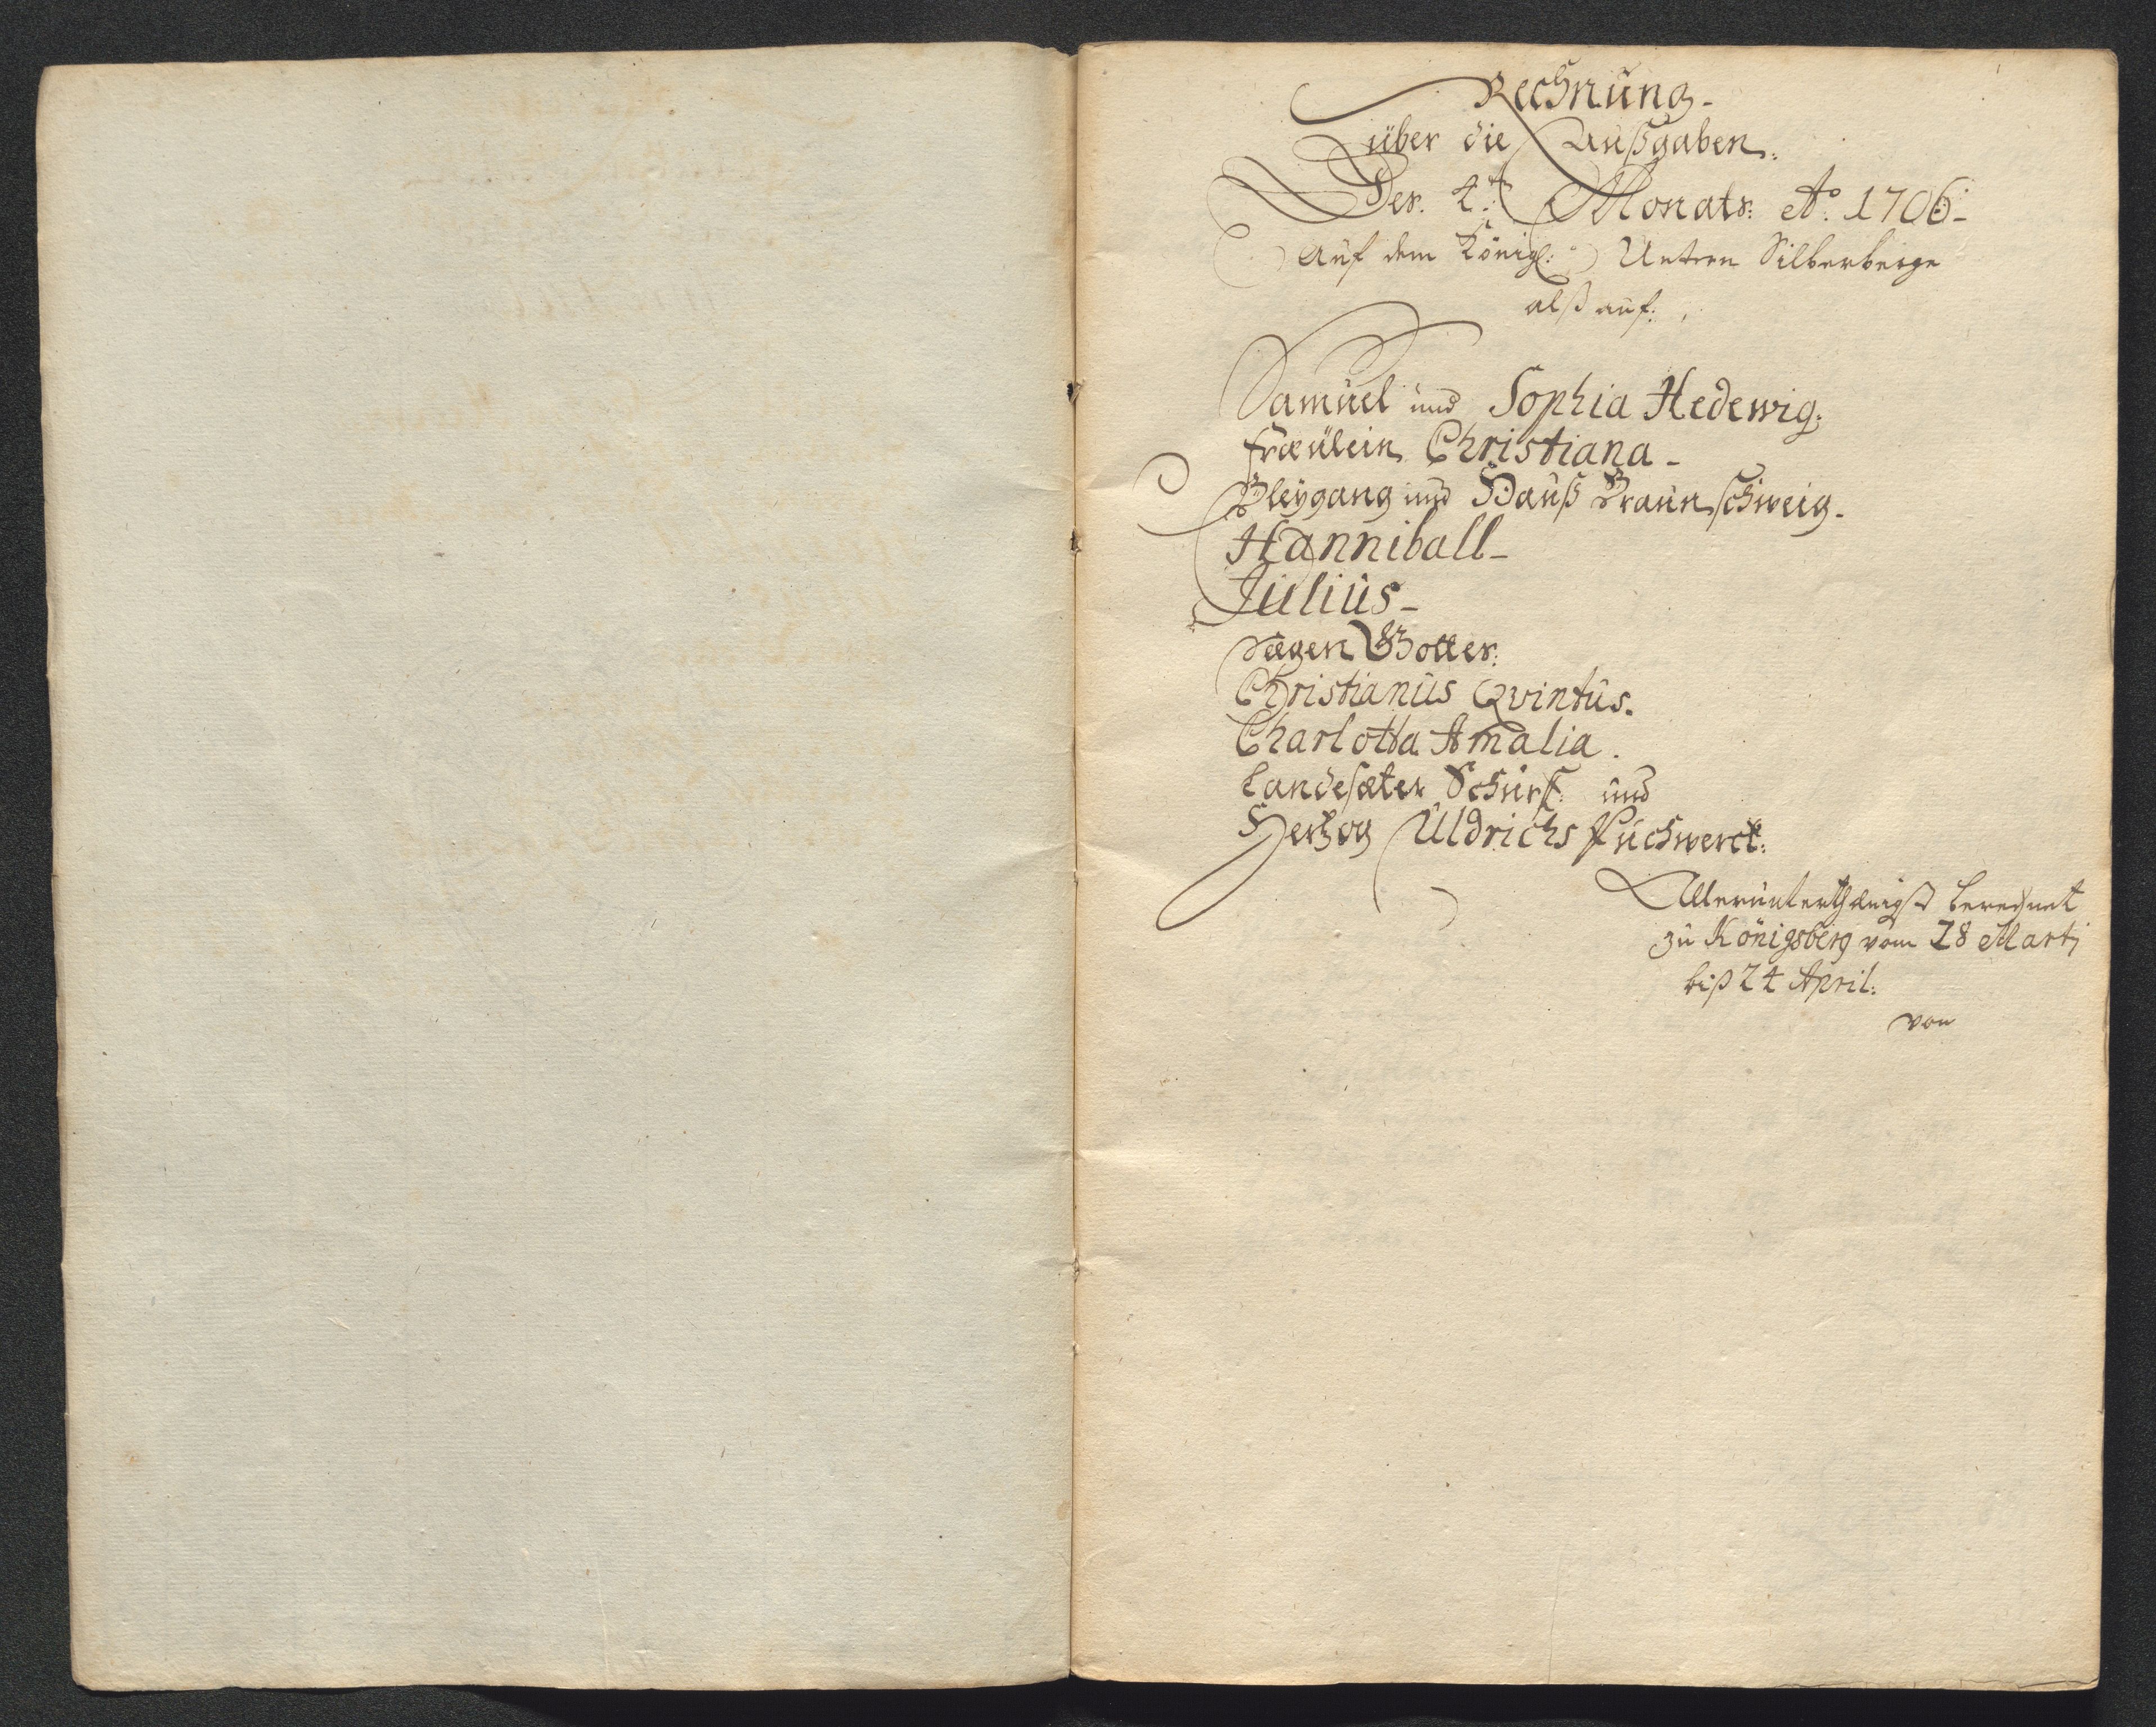 Rechnung
über die Außgaben.
Des 4t Monats Ao. 1706
Auf dem Königl: Untern Silberberge
alß auf:
Samuel und Sophia Hedewig:
fræulein Christiana
Bleygang und Hauß Braunschweig.
Hanniball
Julius
Seegen Gottes:
Christianus Qvintus.
Charlotta Amalia.
Landes Schurf: und
Hertzog Uldrichs Puchwerck:
Allerunterthænigst berechnet
zu Königsberg vom 28 Martj
biß 24 April:
von